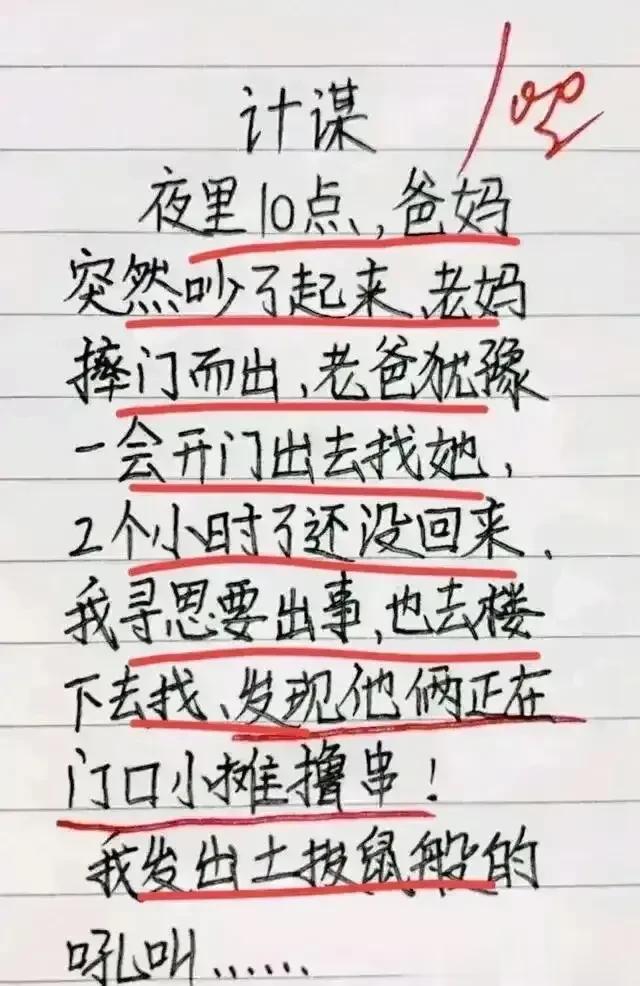 计谋
夜里10点,爸妈
突然吵了起来,老妈
摔门而出,老爸犹豫
一会开门出去找她,
2个小时了还没回来、
我寻思要出事,也去楼
下去找、发现他俩正在
门口小摊撸串!
我发出土拨鼠般的
吼叫......